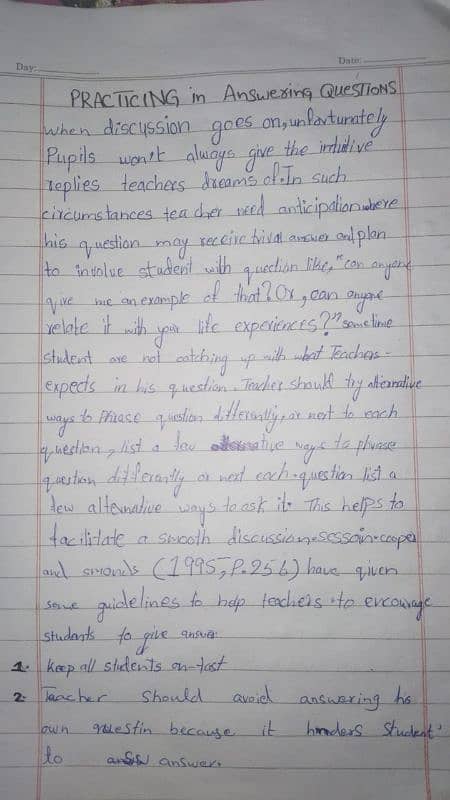 Day:
Date:
PRACTICING in Answering QUESTIONS
when discussion goes on, unfortunately
Pupils won't always give the intuitive
replies teachers dreams of. In such
circumstances teacher need anticipation where
his question may receive trival answer and plan
to involve student with question like, "can anyone
give me an example of that? Or, can anyone
relate it with your life experiences?" some time
student are not catching up with what Teachers-
expects in his question. Teacher should try alternative
ways to Phrase question differently, or next to each
question, list a few alternative ways to phrase
question differently or next each question list a
few alternative ways to ask it. This helps to
facilitate a smooth discussion sessoin. cooper
and simonds (1995, P.256) have given
some guidelines to help teachers to encourage
students to give answer.
1. Keep all students on-tast
2: Teacher should avoid answering his
own questin because it hinders Student'
to answer.